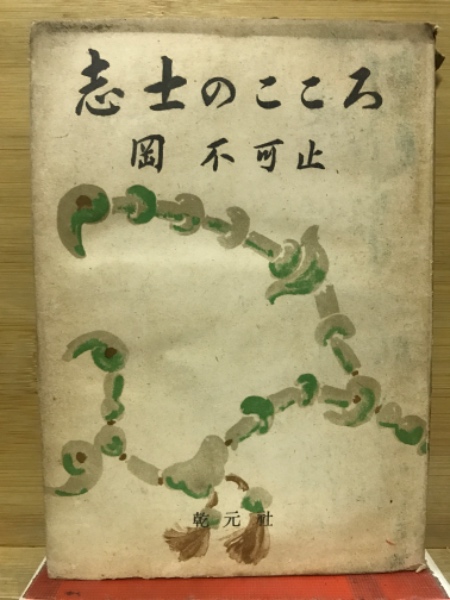 志士のこころ
岡 不可止
乾元社